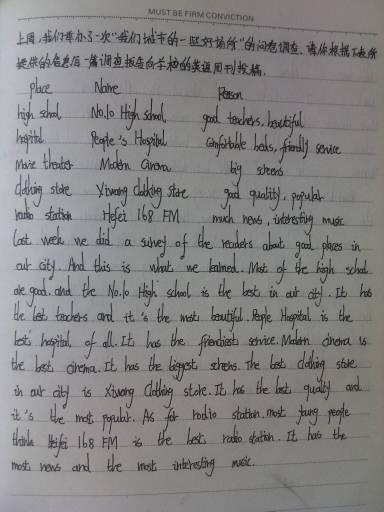 MUST BE FIRM CONVICTION
上周,我们举办了一次"我们城市的一些好场所"的问卷调查.请你根据下表所
提供的信息写一篇调查报告向学校的英语周刊投稿.
Place Name Reason
high school No.10 High School good teachers, beautiful
hospital People's Hospital comfortable beds, friendly service
Movie theater Modern Cinema big screens
clothing store Xiwang Clothing Store good quality, popular
radio station Hefei 168 FM much news, interesting music
Last week we did a survey of the readers about good places in
our city. And this is what we learned. Most of the high school
are good. and the No.10 High school is the best in our city. It has
the best teachers and it's the most beautiful. People Hospital is the
best hospital of all. It has the friendiest service. Modern cinema is
the best cinema. It has the biggest screens. The best clothing store
in our city is Xiwang Clothing store. It has the best quality and
it's the most popular. As for radio station, most young people
think Heifei 168 FM is the best radio station. It has the
most news and the most interesting music.